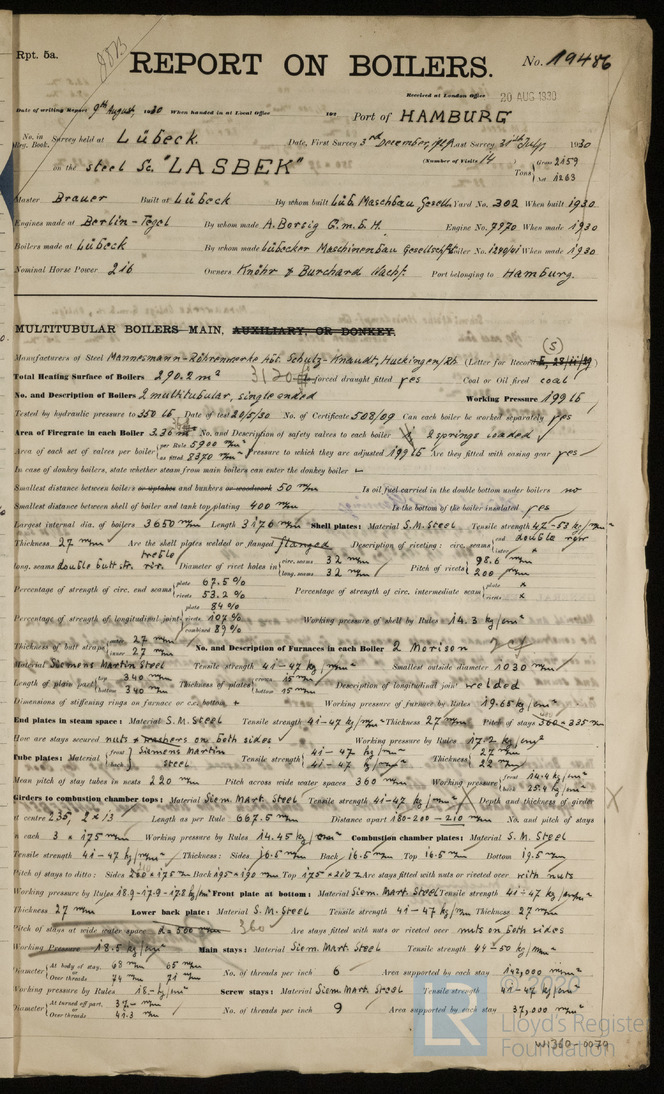 Rpt. 5a.
REPORT ON BOILERS.
No. 19486
Received at London Office 20 AUG 1930
Date of writing Report 9th August, 1930 When handed in at Local Office 192 Port of HAMBURG
No. in Reg. Book. Survey held at Lübeck. Date, First Survey 3rd December, Last Survey 31st July 1930
(Number of Visits 14)
on the steel Sc. "LASBEK" Tons Gross 2159
Net 1263
Master Brauer Built at Lübeck By whom built Lüb. Maschbau Gesell. Yard No. 302 When built 1930
Engines made at Berlin-Tegel By whom made A. Borsig G.m.b.H. Engine No. 7970 When made 1930
Boilers made at Lübeck By whom made Lübecker Maschinenbau Gesellschft Boiler No. 1240/41 When made 1930
Nominal Horse Power 216 Owners Knöhr & Burchard Nachf. Port belonging to Hamburg.
MULTITUBULAR BOILERS MAIN, AUXILIARY, OR DONKEY.
(S)
Manufacturers of Steel Mannesmann-Röhrenwerke Abt. Schulz-Knaudt, Huckingen/Rh (Letter for Record
Total Heating Surface of Boilers 290.2 m² 3120 forced draught fitted yes Coal or Oil fired coal
No. and Description of Boilers 2 multitubular, single ended Working Pressure 199 lb
Tested by hydraulic pressure to 350 lb Date of test 20/5/30 No. of Certificate 508/09 Can each boiler be worked separately yes
Area of Firegrate in each Boiler 3.36 m² No. and Description of safety valves to each boiler 2 springs loaded
Area of each set of valves per boiler per Rule 5900 mm² as fitted 8370 mm² Pressure to which they are adjusted 199 lb Are they fitted with easing gear yes
In case of donkey boilers, state whether steam from main boilers can enter the donkey boiler
Smallest distance between boilers or uptakes and bunkers or woodwork 50 m/m Is oil fuel carried in the double bottom under boilers no
Smallest distance between shell of boiler and tank top plating 400 m/m Is the bottom of the boiler insulated yes
Largest internal dia. of boilers 3650 m/m Length 3176 m/m Shell plates: Material S.M. Steel Tensile strength 47-53 kg/m/m²
Thickness 27 m/m Are the shell plates welded or flanged flanged Description of riveting: circ. seams end double rivr
inter. x
long. seams treble double butt str. riv. Diameter of rivet holes in circ. seams 32 m/m long. seams 32 m/m Pitch of rivets 98.6 200 m/m
Percentage of strength of circ. end seams plate 67.5 % rivets 53.2 % Percentage of strength of circ. intermediate seam plate x rivets x
Percentage of strength of longitudinal joint plate 84 % rivets 107 % combined 89 % Working pressure of shell by Rules 14.3 kg/cm²
Thickness of butt straps outer 27 m/m inner 27 m/m No. and Description of Furnaces in each Boiler 2 Morison
Material Siemens Martin Steel Tensile strength 41-47 kg/mm² Smallest outside diameter 1030 m/m
Length of plain part top 340 m/m bottom 340 m/m Thickness of plates crown 15 m/m bottom 15 m/m Description of longitudinal joint welded
Dimensions of stiffening rings on furnace or c.c. bottom + Working pressure of furnace by Rules 19.65 kg/cm²
End plates in steam space: Material S.M. Steel Tensile strength 41-47 kg/m/m² Thickness 27 m/m Pitch of stays 360 x 395 m
How are stays secured nuts & washers on both sides Working pressure by Rules 17.2 kg/cm²
Tube plates: Material front back Siemens Martin Steel Tensile strength 41-47 kg/mm² 41-47 kg/mm² Thickness 27 m/m 22 m/m
Mean pitch of stay tubes in nests 220 m/m Pitch across wide water spaces 360 m/m Working pressure front 14.4 kg/cm² back 25.4 kg/cm²
Girders to combustion chamber tops: Material Siem. Mart. Steel Tensile strength 41-47 kg/mm² Depth and thickness of girder
at centre 235, 2 x 13 Length as per Rule 667.5 m/m Distance apart 180-200-210 m/m No. and pitch of stays
in each 3 x 175 m/m Working pressure by Rules 14.45 kg/cm² Combustion chamber plates: Material S.M. Steel
Tensile strength 41-47 kg/mm² Thickness: Sides 16.5 m/m Back 16.5 m/m Top 16.5 m/m Bottom 19.5 m/m
Pitch of stays to ditto: Sides 200 x 175 m Back 195 x 190 m Top 175 x 210 Are stays fitted with nuts or riveted over with nuts
Working pressure by Rules 18.9-17.9-17.8 kg/cm² Front plate at bottom: Material Siem. Mart. Steel Tensile strength 41-47 kg/mm²
Thickness 27 m/m Lower back plate: Material S.M. Steel Tensile strength 41-47 kg/mm Thickness 27 m/m
Pitch of stays at wide water space d = 500 m/m 360 Are stays fitted with nuts or riveted over nuts on both sides
Working Pressure 18.5 kg/cm² Main stays: Material Siem. Mart. Steel Tensile strength 44-50 kg/mm²
Diameter At body of stay, 68 m/m 65 m/m Over threads 74 m/m 71 m/m No. of threads per inch 6 Area supported by each stay 142,000 m/m²
Working pressure by Rules 18.- kg/cm² Screw stays: Material Siem. Mart. Steel Tensile strength 41-47 kg/mm²
Diameter At turned off part, 37.- m/m or Over threads 41.3 m/m No. of threads per inch 9 Area supported by each stay 37,000 m/m²
© 2020
LR Lloyd's Register
Foundation
W1360-0079